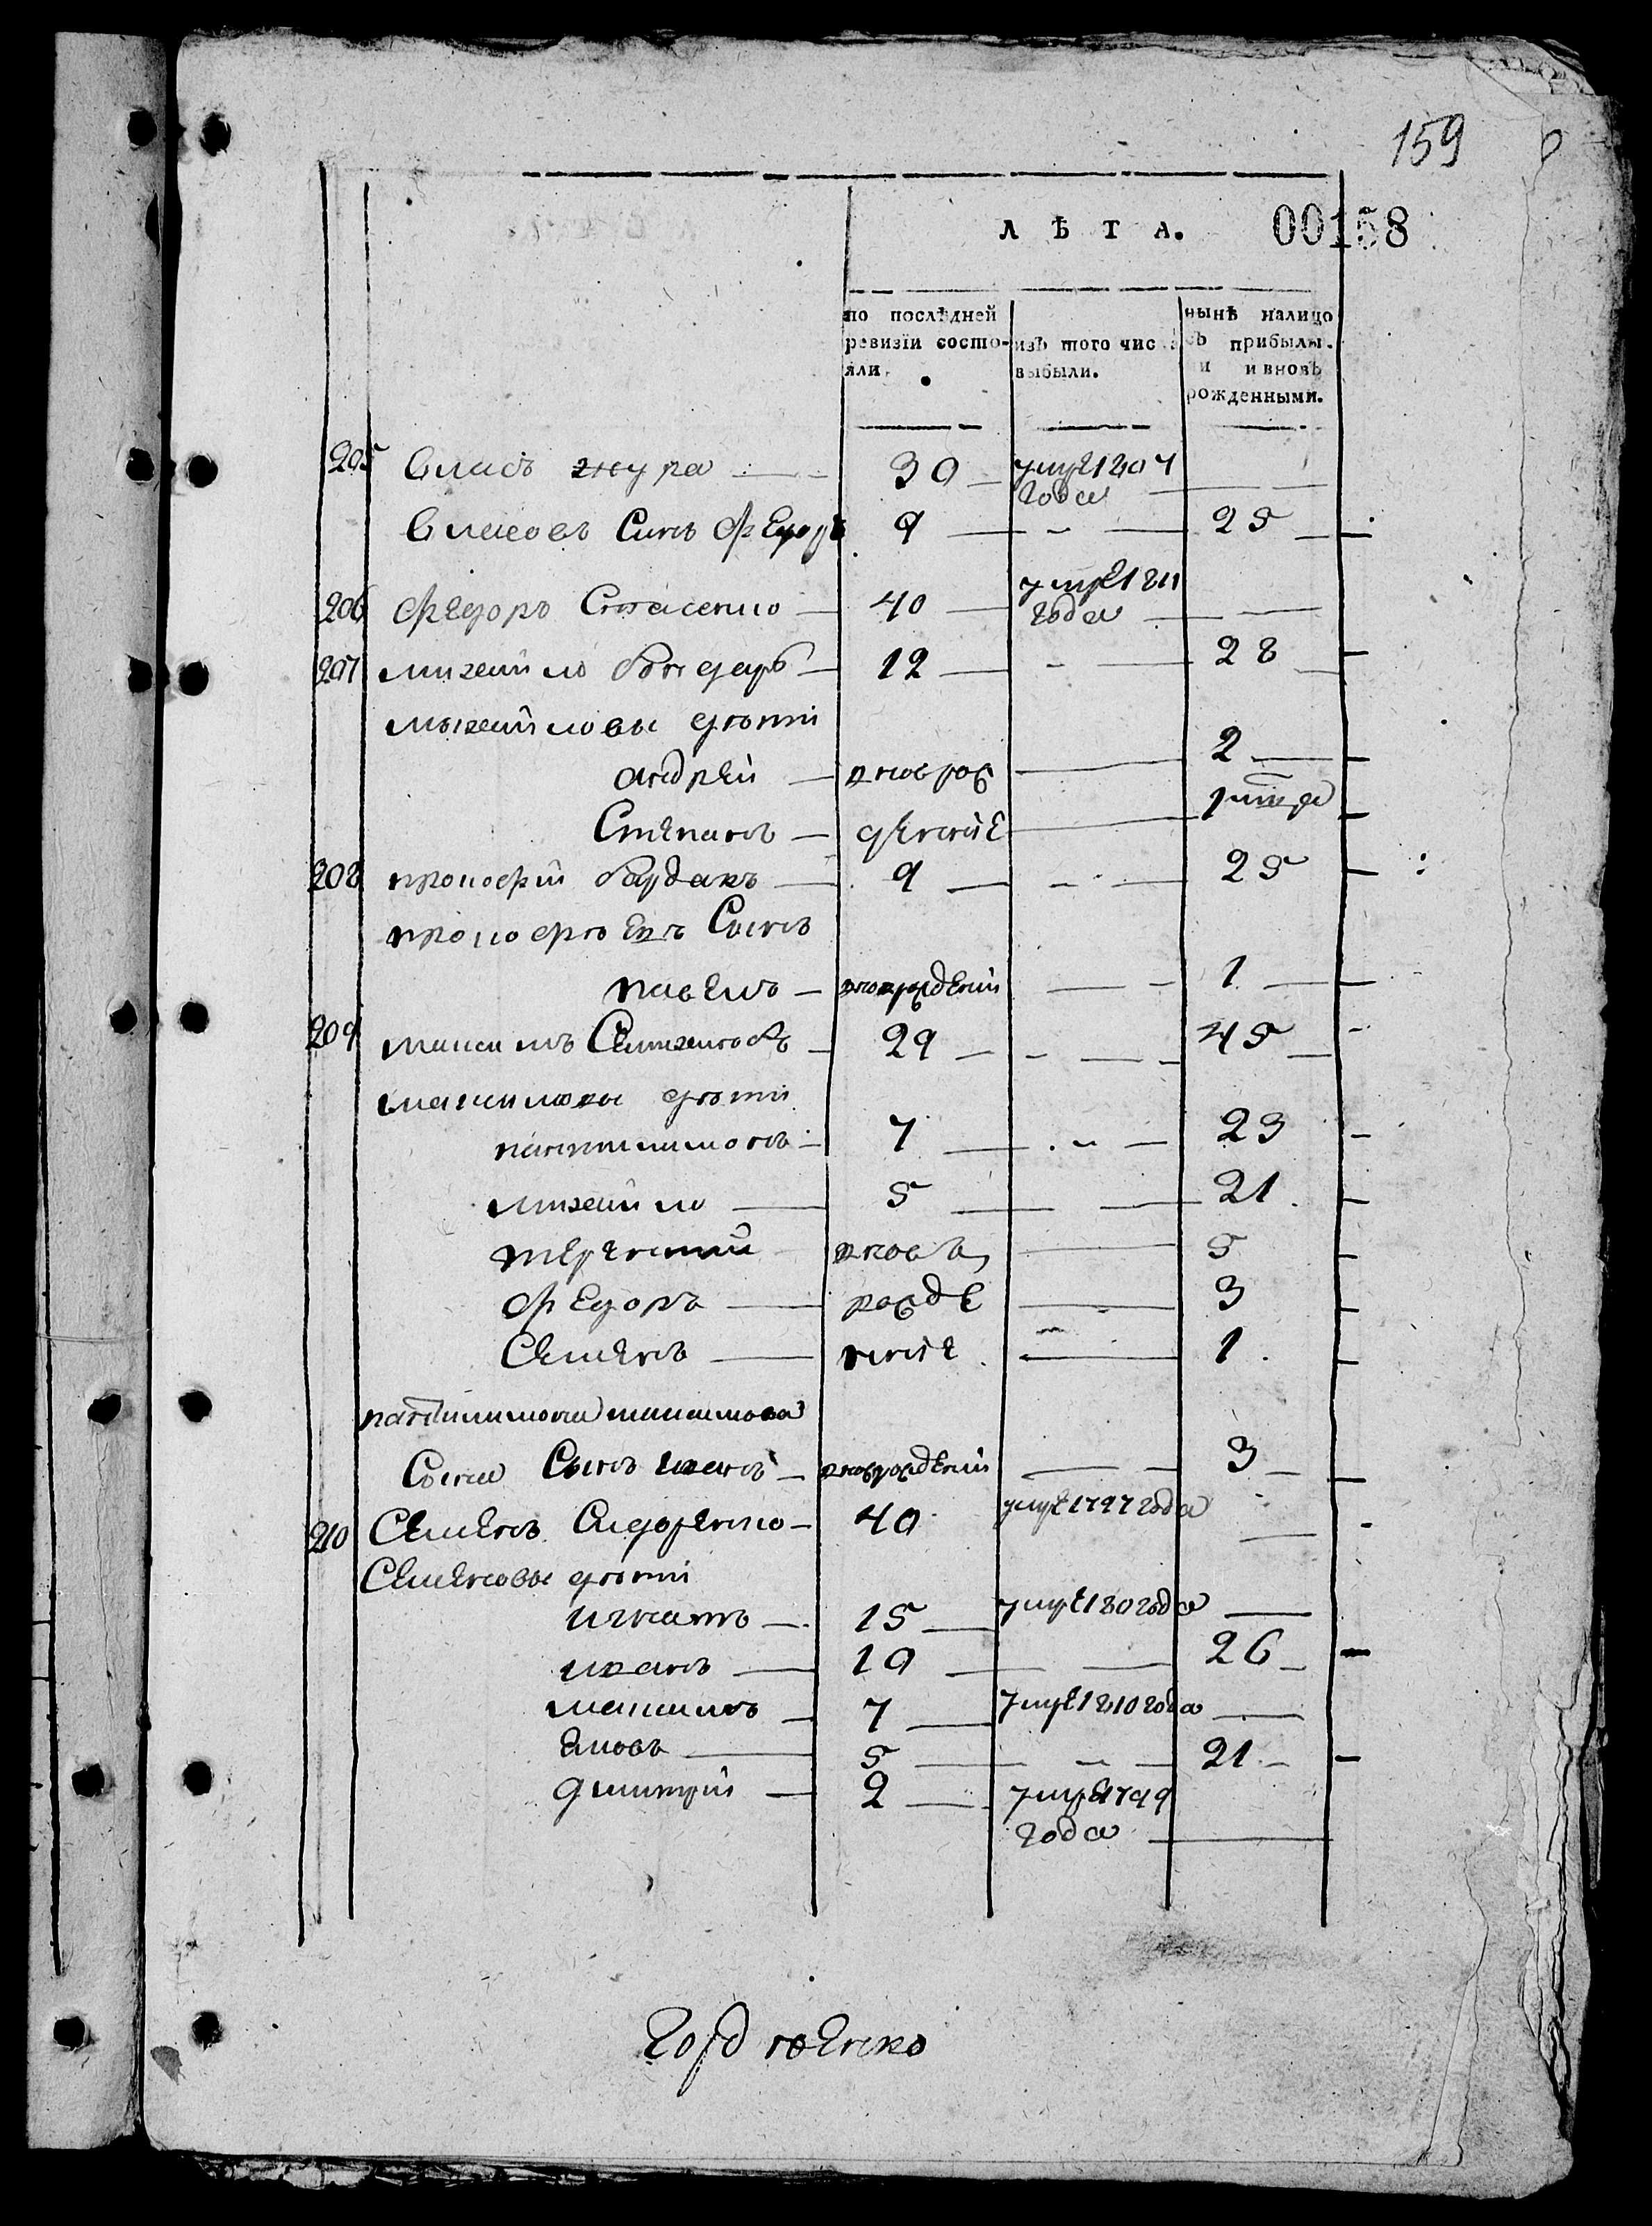 159
ЛѢТА. 00158
по послѣдней ревизіи состояли.
изъ того числа выбыли.
нынѣ налицо съ прибылы. и и вновь рожденными.
205 Власъ Жура 30 умре 1807 года
Власовъ Синъ Федоръ 9 25
206 Федоръ Стасенко 40 умре 1811 года
207 михайло бондарь 12 28
михайловы дѣти
андрей вновь рож 2
Степанъ дение 1
208 прокофій бардакъ 9 25
прокофѣевъ Сынъ
павелъ вноврождений 1
209 максимъ 29 45
максимовы дѣти
пантилимонъ 7 23
михайло 5 21
терентий вновъ 5
Федоръ рожде 3
Семенъ ние 1
пантилимона максимова
Сына Сынъ иванъ вноврождений 3
210 Семенъ Сидоренко 40 умре 1797 года
Семеновы дѣти
игнатъ 15 умре 180 года
иванъ 10 26
максимъ 7 умре 1810 года
яковъ 5 21
дмитрій 2 умре 1799
года